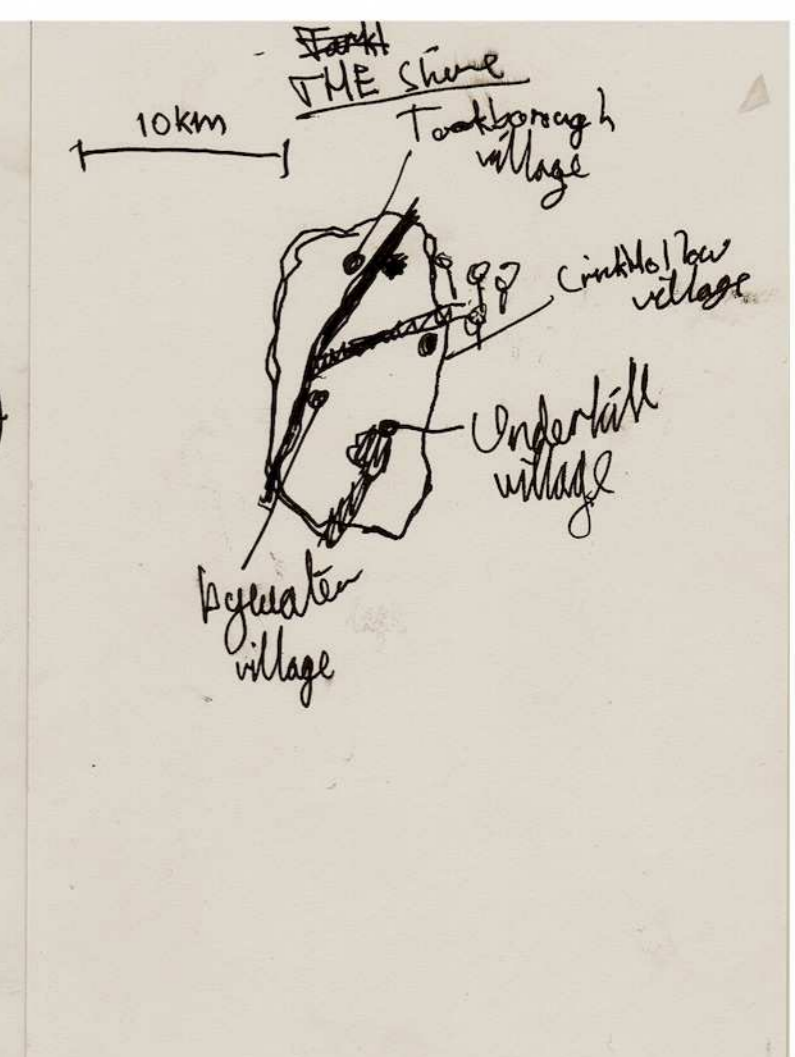 THE Shire
10km
Tookborough
village
Crickhollow
village
Underhill
village
Bywater
village